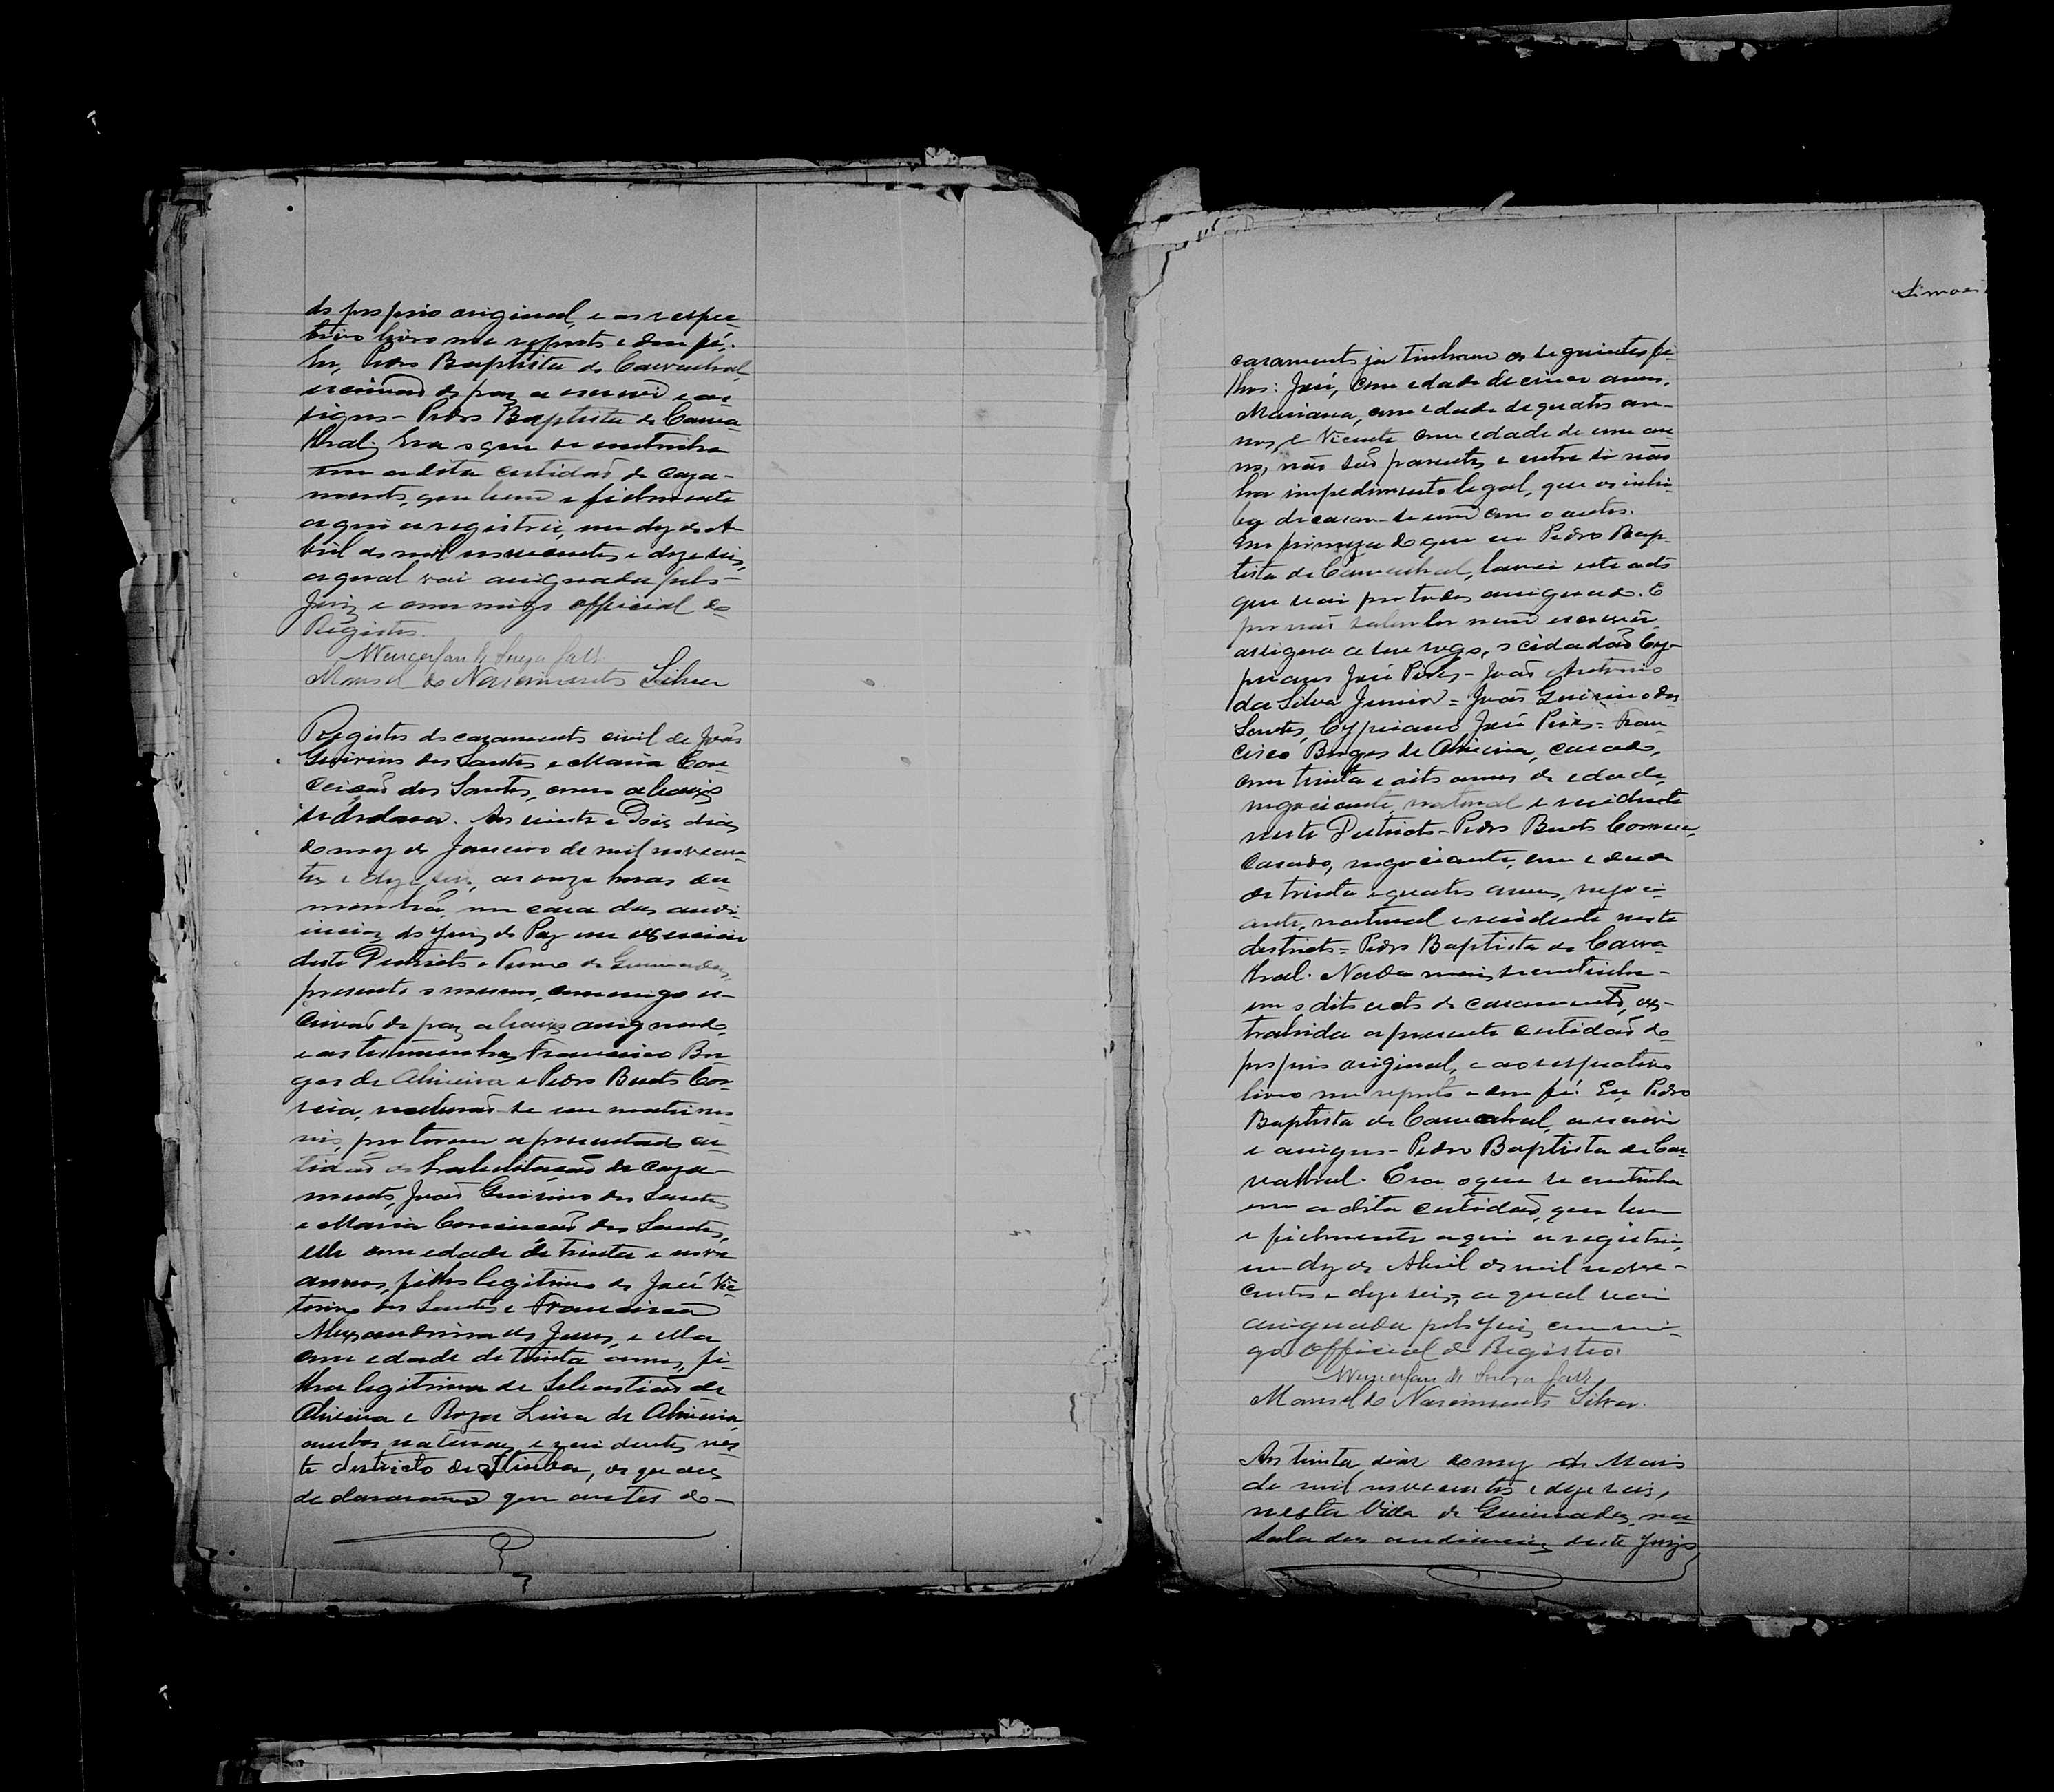 do proprio original, e ao respec-
tivo livro me reporto e dou fé.
Eu, Pedro Baptista de Carvalhal,
escrivão de paz a escrevi e as-
signo - Pedro Baptista de Carva-
lhal. Era o que se continha
em a dita certidão de caza-
mento, que bem e fielmente
aqui a registrei, em dez de A-
bril de mil novecentos e dezeseis,
a qual vai assignada pelo
Juiz e commigo official do
Registro.
de Souza
Manoel do Nascimento Silva
Registro do casamento civil de João
Guirino dos Santos e Maria Con-
ceição dos Santos, como abaixo
se declara. Aos vinte e Dois dias
do mez de Janeiro de mil novecen-
tos e dezeseis, as onze horas da
manhã, em casa das audi-
encias do Juiz de Paz em exercicio
deste Districto e Termo de Queimadas,
presente o mesmo, commigo es-
crivão de paz abaixo assignado,
e as testemunhas, Francisco Bor-
ges de Oliveira e Pedro Bento Cor-
reia, receberão-se em matrimo-
nio, por terem apresentado cer-
tidão de habilitação de caza-
mento, João Guirino dos Santos
e Maria Conceição dos Santos,
elle com edade de trinta e nove
annos, filho legitimo de José Vic-
torino dos Santos e Francisca
Alexandrina de Jesus, e ella
com edade de trinta annos, fi-
lha legitima de Sebastião de
Oliveira e Roza Luiza de Oliveira,
ambos naturaes e residentes nes-
te districto de Itiuba, os quaes
declararam que antes do
Simões
casamento ja tinham os seguintes fi-
lhos: José, com edade de cinco annos,
Mariana, com edade de quatro an-
nos, e Vicente com edade de um an-
no, não são parentes e entre si não
ha impedimento legal, que os inhi-
ba de casar-se um com o outro.
Em firmeza do que eu Pedro Bap-
tista de Carvalhal, lavrei este acto
que vai por todos assignado. E
por não saber ler nem escrever
assigna a seu rogo, o cidadão Cy-
priano José Pires - João Antonio
da Silva Junior = João Guirino dos
Santos, Cypriano José Pires = Fran-
cisco Borges de Oliveira, casado,
com trinta e oito annos de edade,
negociante, natural e residente
neste Districto - Pedro Bento Correia,
casado, negociante, com edade
de trinta e quatro annos, negoci-
ante, natural e residente neste
districto = Pedro Baptista de Carva-
lhal. Nada mais se continha
em o dito acto de casamento, ex-
trahida a presente certidão do
proprio original, e ao respectivo
livro me reporto e dou fé. Eu Pedro
Baptista de Carvalhal, a escrevi
e assigno - Pedro Baptista de Car-
valhal. Era o que se continha
em a dita certidão, que bem
e fielmente aqui a registrei,
em dez de Abril de mil nove-
centos e dezeseis, a qual vai
assignada pelo Juiz commi-
go Official do Registro.
de Souza
Manoel do Nascimento Silva.
Aos trinta dias do mez de Maio
de mil novecentos e dezeseis,
nesta Villa de Queimadas, na
sala das audiencias deste Juizo